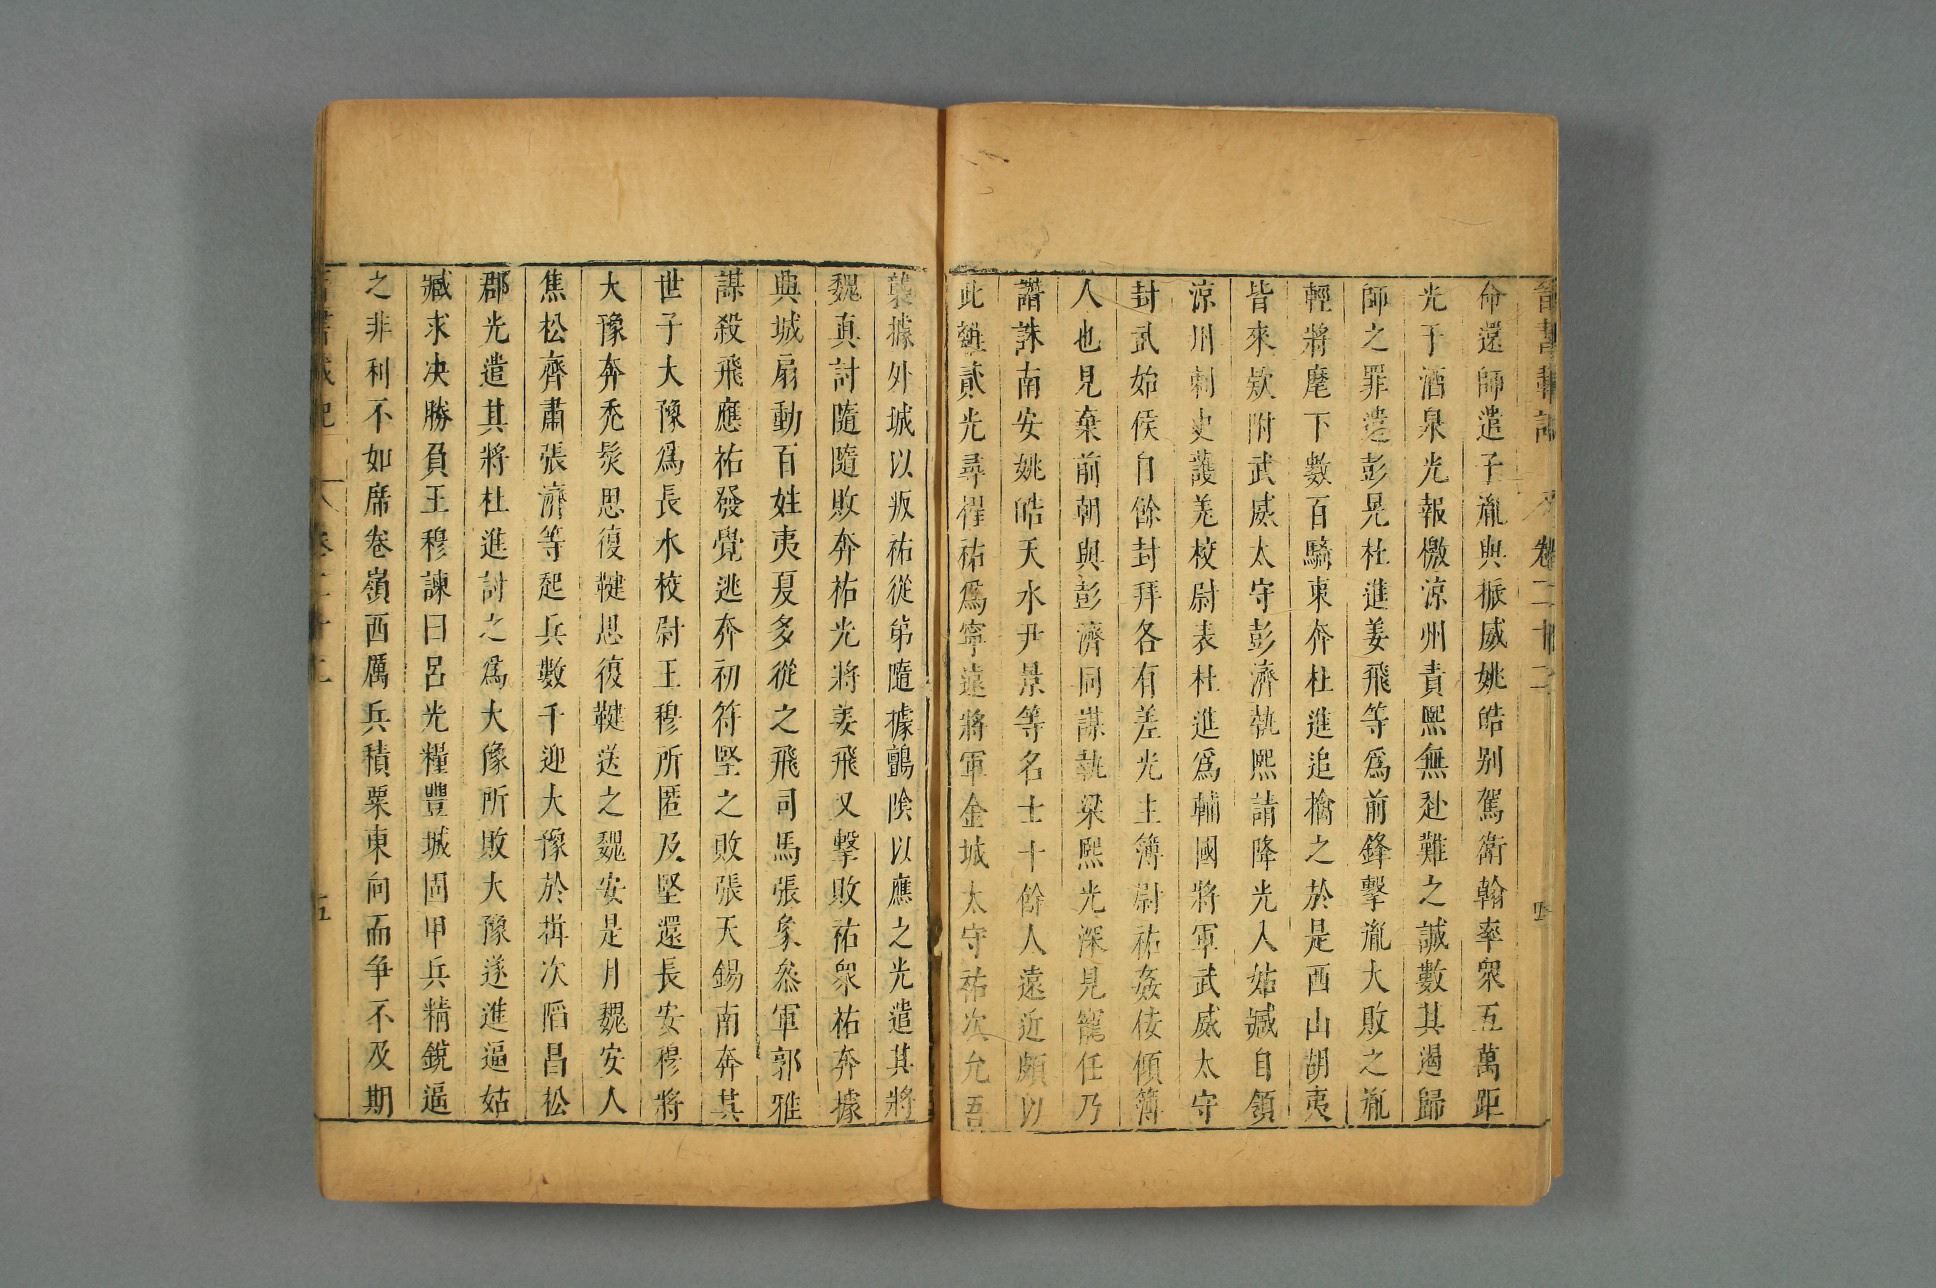 晉書載記 卷二十二 四
命還師遣子胤與振威姚皓别駕衛翰率衆五萬距
光于酒泉光報檄涼州責熙無赴難之誠數其遏歸
師之罪遣彭晃杜進姜飛等爲前鋒擊胤大敗之胤
輕將麾下數百騎東奔杜進追擒之於是西山胡夷
皆來欵附武威太守彭濟執熙請降光入姑臧自領
涼州刺史護羌校尉表杜進爲輔國將軍武威太守
封武始侯自餘封拜各有差光主簿尉祐姦佞傾簿
人也見棄前朝與彭濟同謀執梁熙光深見寵任乃
譖誅南安姚皓天水尹景等名士十餘人遠近頗以
此離貳光尋擢祐爲寧遠將軍金城太守祐次允吾
襲據外城以叛祐從弟隨據鸇陰以應之光遣其將
魏真討隨隨敗奔祐光將姜飛又擊敗祐衆祐奔據
興城扇動百姓夷夏多從之飛司馬張象叅軍郭雅
謀殺飛應祐發覺逃奔初苻堅之敗張天錫南奔其
世子大豫爲長水校尉王穆所匿及堅還長安穆將
大豫奔禿髮思復鞬思復鞬送之魏安是月魏安人
焦松齊肅張濟等起兵數千迎大豫於揖次陷昌松
郡光遣其將杜進討之爲大豫所敗大豫遂進逼姑
臧求决勝負王穆諫曰呂光糧豐城固甲兵精銳逼
之非利不如席卷嶺西厲兵積粟東向而争不及期
晉書載記 卷二十二 五